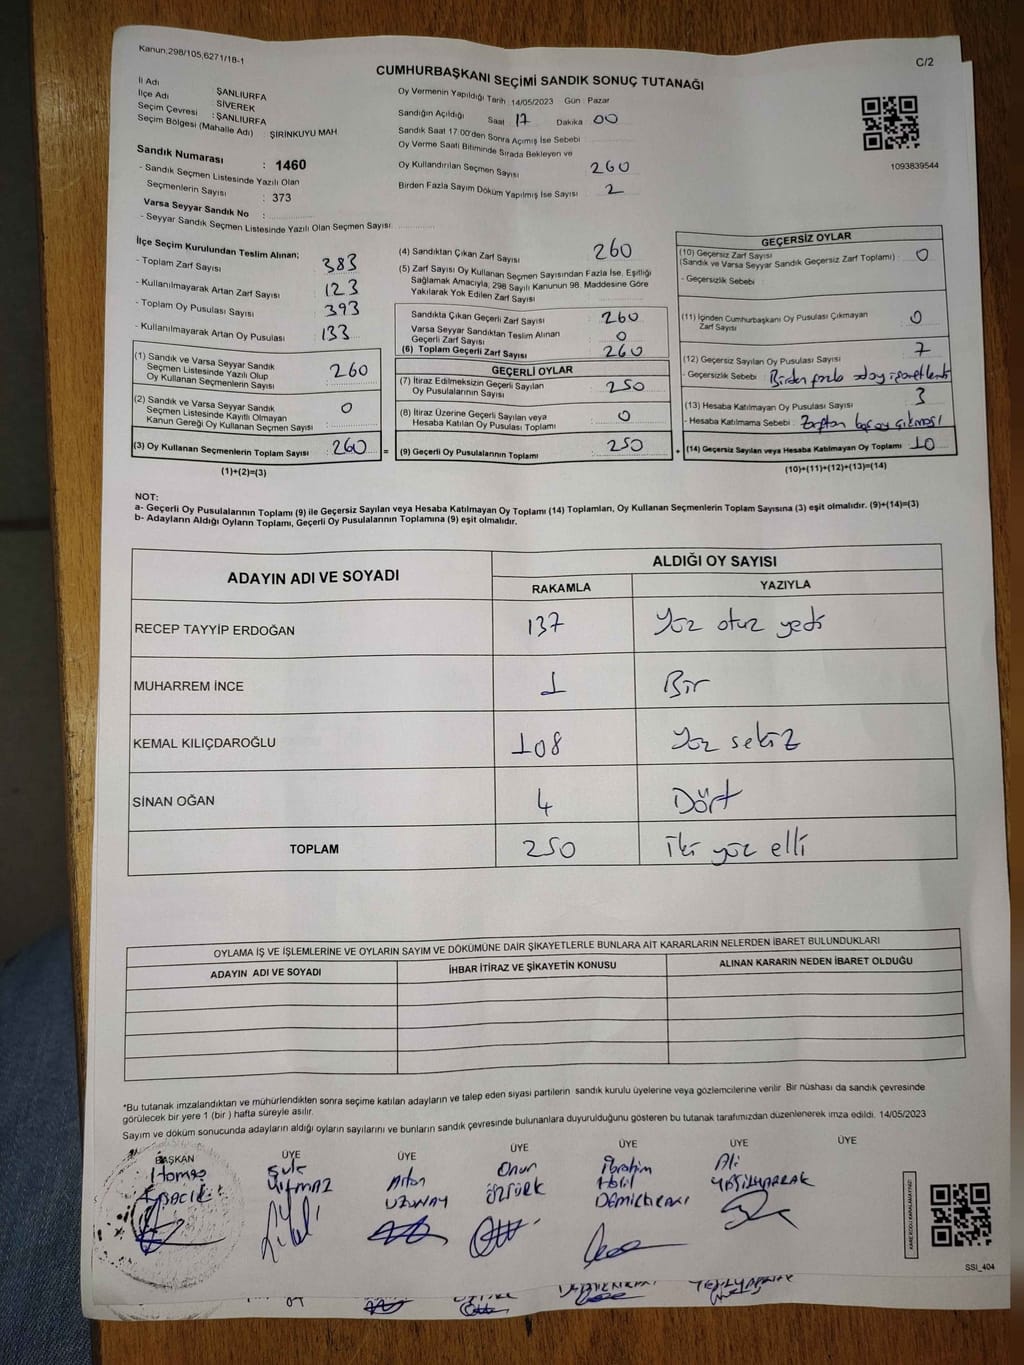 Kanun;298/105,6271/18-1
C/2
CUMHURBAŞKANI SEÇİMİ SANDIK SONUÇ TUTANAĞI
İl Adı : ŞANLIURFA
İlçe Adı : SİVEREK
Seçim Çevresi : ŞANLIURFA
Seçim Bölgesi (Mahalle Adı) : ŞİRİNKUYU MAH
Sandık Numarası : 1460
- Sandık Seçmen Listesinde Yazılı Olan
Seçmenlerin Sayısı : 373
Varsa Seyyar Sandık No :
- Seyyar Sandık Seçmen Listesinde Yazılı Olan Seçmen Sayısı:
Oy Vermenin Yapıldığı Tarih : 14/05/2023 Gün : Pazar
Sandığın Açıldığı Saat 17 Dakika 00
Sandık Saat 17:00'den Sonra Açımış İse Sebebi
Oy Verme Saati Bitiminde Sırada Bekleyen ve
Oy Kullandırılan Seçmen Sayısı 260
Birden Fazla Sayım Döküm Yapılmış İse Sayısı 2
1093839544
İlçe Seçim Kurulundan Teslim Alınan;
- Toplam Zarf Sayısı : 383
- Kullanılmayarak Artan Zarf Sayısı : 123
- Toplam Oy Pusulası Sayısı : 393
- Kullanılmayarak Artan Oy Pusulası : 133
(1) Sandık ve Varsa Seyyar Sandık
Seçmen Listesinde Yazılı Olup
Oy Kullanan Seçmenlerin Sayısı : 260
(2) Sandık ve Varsa Seyyar Sandık
Seçmen Listesinde Kayıtlı Olmayan
Kanun Gereği Oy Kullanan Seçmen Sayısı : 0
(3) Oy Kullanan Seçmenlerin Toplam Sayısı : 260 =
(1)+(2)=(3)
(4) Sandıktan Çıkan Zarf Sayısı : 260
(5) Zarf Sayısı Oy Kullanan Seçmen Sayısından Fazla İse, Eşitliği
Sağlamak Amacıyla; 298 Sayılı Kanunun 98. Maddesine Göre
Yakılarak Yok Edilen Zarf Sayısı :
Sandıkta Çıkan Geçerli Zarf Sayısı : 260
Varsa Seyyar Sandıktan Teslim Alınan
Geçerli Zarf Sayısı : 0
(6) Toplam Geçerli Zarf Sayısı : 260
GEÇERLİ OYLAR
(7) İtiraz Edilmeksizin Geçerli Sayılan
Oy Pusulalarının Sayısı : 250
(8) İtiraz Üzerine Geçerli Sayılan veya
Hesaba Katılan Oy Pusulası Toplamı : 0
(9) Geçerli Oy Pusulalarının Toplamı : 250 +
GEÇERSİZ OYLAR
(10) Geçersiz Zarf Sayısı
(Sandık ve Varsa Seyyar Sandık Geçersiz Zarf Toplamı) : 0
- Geçersizlik Sebebi :
(11) İçinden Cumhurbaşkanı Oy Pusulası Çıkmayan
Zarf Sayısı : 0
(12) Geçersiz Sayılan Oy Pusulası Sayısı : 7
- Geçersizlik Sebebi : Birden fazla aday işaretlendi
(13) Hesaba Katılmayan Oy Pusulası Sayısı : 3
- Hesaba Katılmama Sebebi : Zarftan boş oy çıkması
(14) Geçersiz Sayılan veya Hesaba Katılmayan Oy Toplamı : 10
(10)+(11)+(12)+(13)=(14)
NOT:
a- Geçerli Oy Pusulalarının Toplamı (9) ile Geçersiz Sayılan veya Hesaba Katılmayan Oy Toplamı (14) Toplamları, Oy Kullanan Seçmenlerin Toplam Sayısına (3) eşit olmalıdır. (9)+(14)=(3)
b- Adayların Aldığı Oyların Toplamı, Geçerli Oy Pusulalarının Toplamına (9) eşit olmalıdır.
ADAYIN ADI VE SOYADI
ALDIĞI OY SAYISI
RAKAMLA YAZIYLA
RECEP TAYYİP ERDOĞAN 137 Yüz otuz yedi
MUHARREM İNCE 1 Bir
KEMAL KILIÇDAROĞLU 108 Yüz sekiz
SİNAN OĞAN 4 Dört
TOPLAM 250 iki yüz elli
OYLAMA İŞ VE İŞLEMLERİNE VE OYLARIN SAYIM VE DÖKÜMÜNE DAİR ŞİKAYETLERLE BUNLARA AİT KARARLARIN NELERDEN İBARET BULUNDUKLARI
ADAYIN ADI VE SOYADI İHBAR İTİRAZ VE ŞİKAYETİN KONUSU ALINAN KARARIN NEDEN İBARET OLDUĞU
*Bu tutanak imzalandıktan ve mühürlendikten sonra seçime katılan adayların ve talep eden siyasi partilerin sandık kurulu üyelerine veya gözlemcilerine verilir. Bir nüshası da sandık çevresinde
görülecek bir yere 1 (bir ) hafta süreyle asılır.
Sayım ve döküm sonucunda adayların aldığı oyların sayılarını ve bunların sandık çevresinde bulunanlara duyurulduğunu gösteren bu tutanak tarafımızdan düzenlenerek imza edildi. 14/05/2023
BAŞKAN ÜYE ÜYE ÜYE ÜYE ÜYE ÜYE
Şule Onur İbrahim Ali
YILMAZ UZUNAY ÖZTÜRK Halil YEŞİLYAPRAK
SSİ_404